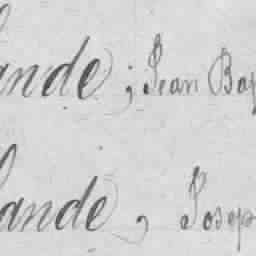 lande ; Jean Bap
lande , Josep